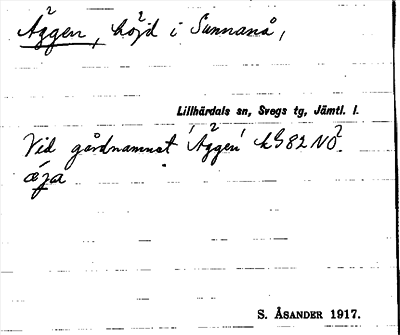 Äggen, höjd i Sunnanå,
Lillhärdals sn, Svegs tg, Jämtl. l.
Vid gårdnamnet 'Äggen' kG82NÖ?
æja
S. ÅSANDER 1917.